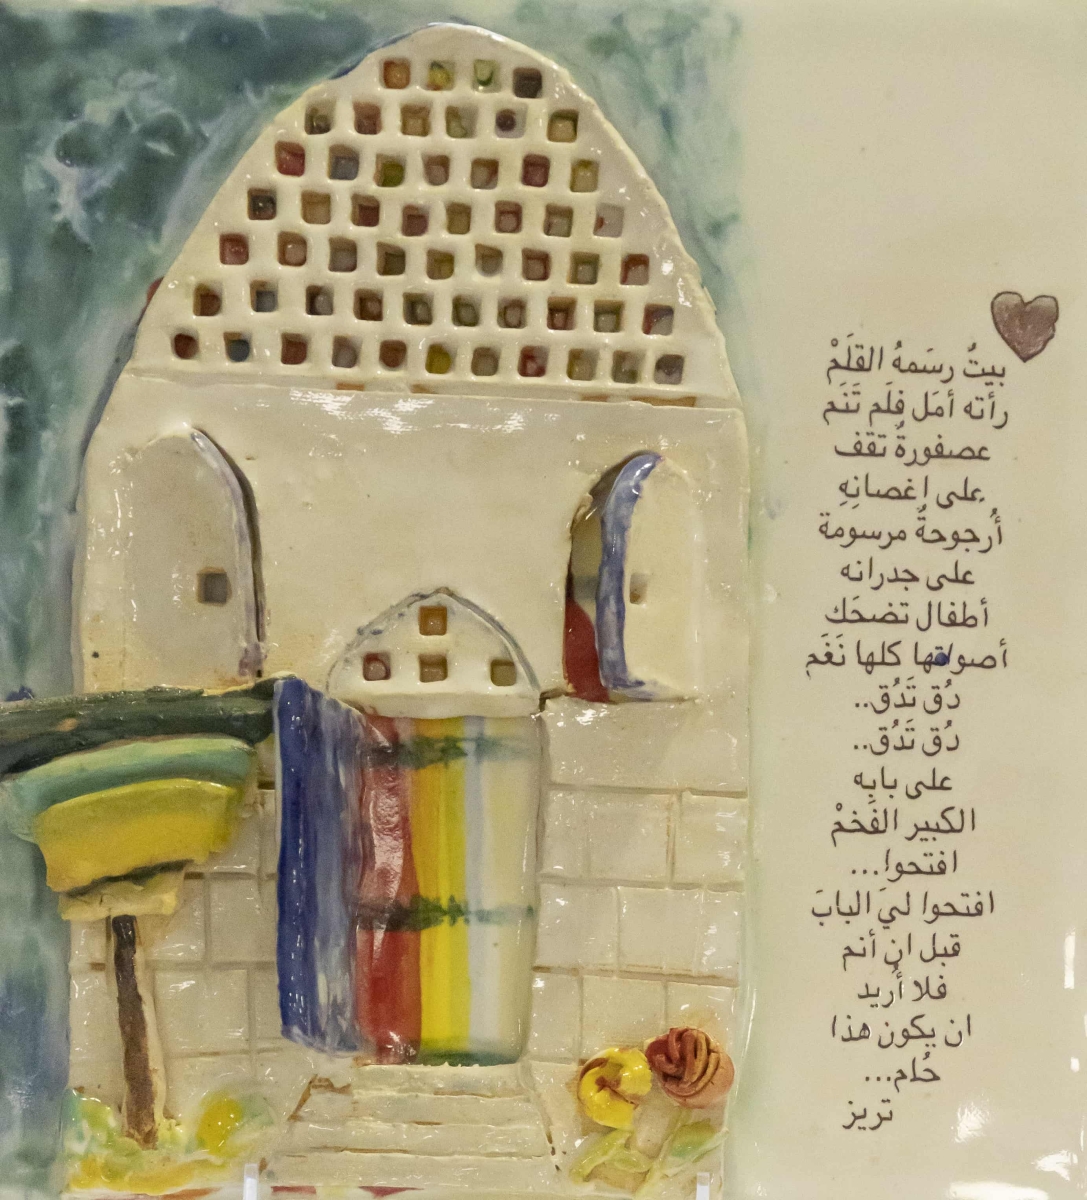 بيتٌ رسَمهُ القلَمْ
رأته أمَل فلَم تَنَم
عصفورةٌ تقف
على اغصانِهِ
أُرجوحةٌ مرسومة
على جدرانه
أطفال تضحَك
أصواتها كلها نَغَمِ
دُق تَدُق..
دُق تَدُق..
على بابِه
الكبير الفَخمْ
افتحوا...
افتحوا ليَ البابَ
قبل ان أنم
فلا أُريد
ان يكون هذا
حُلم...
تريز